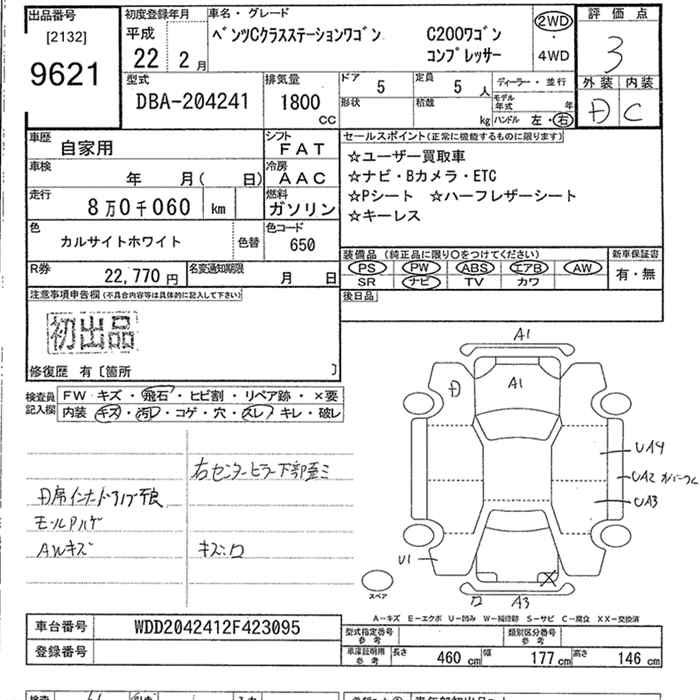 出品番号
[2132]
9621
初度登録年月
平成
22 2月
車名・グレード
ベンツCクラスステーションワゴン C200ワゴン
コンプレッサー
2WD
・
4WD
評価点
3
外装 内装
D C
型式
DBA-204241
排気量
1800
CC
ドア 5
定員 5人
形状
積載 kg
ディーラー・並行
モデル年式 年
ハンドル 左・右
車歴
自家用
シフト
FAT
車検
年 月( 日)
冷房
AAC
走行
8万0千060 km
燃料
ガソリン
色
カルサイトホワイト
色替
色コード
650
R券
22,770円
名変通知期限
月 日
セールスポイント(正常に機能するものに限ります)
☆ユーザー買取車
☆ナビ・Bカメラ・ETC
☆Pシート ☆ハーフレザーシート
☆キーレス
装備品 (純正品に限り○をつけてください)
PS PW ABS エアB AW
SR ナビ TV カワ
新車保証書
有・無
後日品
注意事項申告欄(不具合内容等は具体的に記入して下さい)
初出品
修復歴 有〔箇所 〕
検査員
記入欄
FW キズ・飛石・ヒビ割・リペア跡・×要
内装 キズ・汚レ・コゲ・穴・スレ・キレ・破レ
右センターピラー下部歪ミ
D席インナードアノブ不良
モールハゲ
AWキズ
キズ、ワ
A1
A1
D
UA4
UA2
UA3
U1
X
ワ A3
スペア
A-キズ E-エクボ U-凹み W-補修跡 S-サビ C-腐食 XX-交換済
車台番号
WDD2042412F423095
登録番号
型式指定番号
参考
類別区分番号
参考
車庫証明用
参考
長さ 460cm
幅 177cm
高さ 146cm